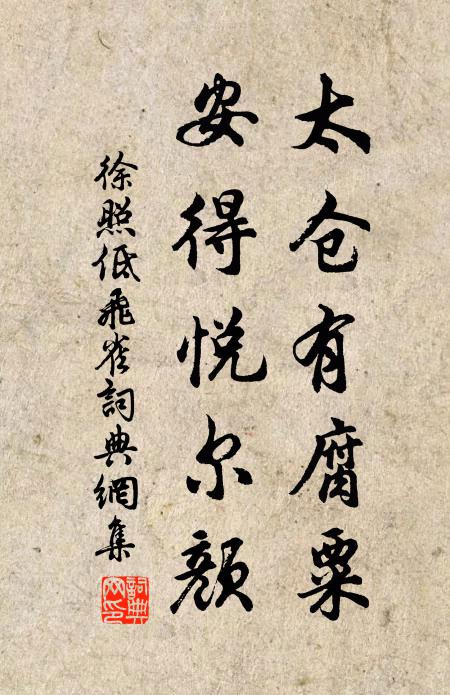 太仓有腐粟
安得悦尔颜
徐照低飞雀詞典網集
詞典
网印